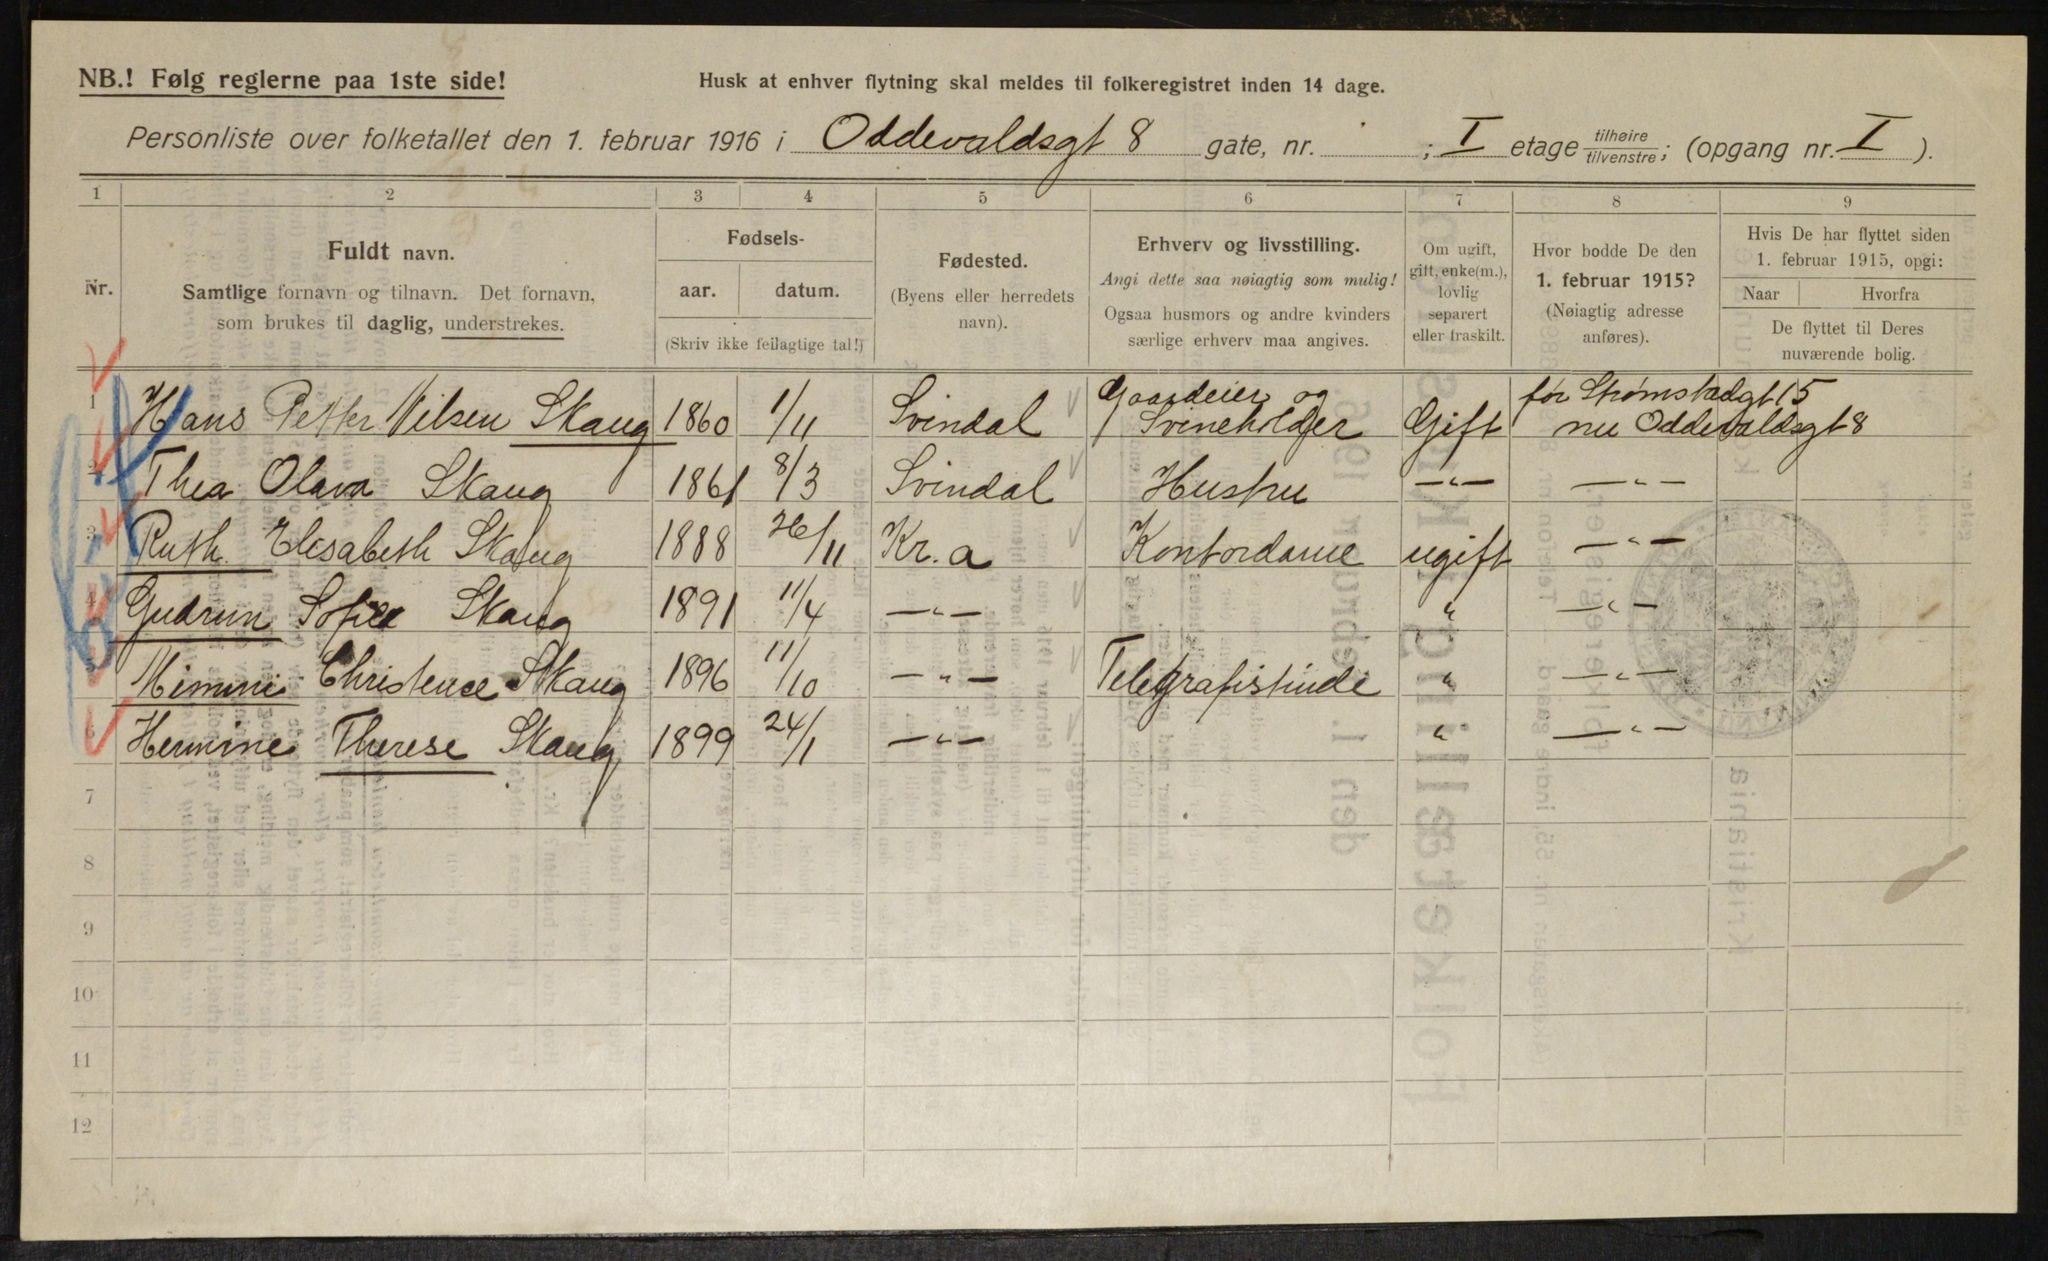 NB.! Følg reglerne paa 1ste side!
Husk at enhver flytning skal meldes til folkeregistret inden 14 dage.
Personliste over folketallet den 1. februar 1916 i Oddevaldsgt 8 gate, nr. ; I etage tilhøire/tilvenstre; (opgang nr. I ).
1 2 3 4 5 6 7 8 9
Nr.
Fuldt navn.
Samtlige fornavn og tilnavn. Det fornavn,
som brukes til daglig, understrekes.
Fødsels-
aar. datum.
(Skriv ikke feilagtige tal!)
Fødested.
(Byens eller herredets
navn).
Erhverv og livsstilling.
Angi dette saa nøiagtig som mulig!
Ogsaa husmors og andre kvinders
særlige erhverv maa angives.
Om ugift,
gift, enke(m.),
lovlig
separert
eller fraskilt.
Hvor bodde De den
1. februar 1915?
(Nøiagtig adresse
anføres).
Hvis De har flyttet siden
1. februar 1915, opgi:
Naar Hvorfra
De flyttet til Deres
nuværende bolig.
1 Hans Petter Nilsen Skaug 1860 1/11 Svindal Gaardeier og Svineholder Gift før Strømstadgt 15 nu Oddevaldsgt 8
2 Thea Olava Skaug 1861 8/3 Svindal Hustru —„— —„—
3 Ruth Elisabeth Skaug 1888 26/11 Kr.a Kontordame ugift —„—
4 Gudrun Sofie Skaug 1891 11/4 —„— „ —„—
5 Mimmi Christence Skaug 1896 11/10 —„— Telegrafistinde „ —„—
6 Hermine Therese Skaug 1899 24/1 —„— „ —„—
7
8
9
10
11
12